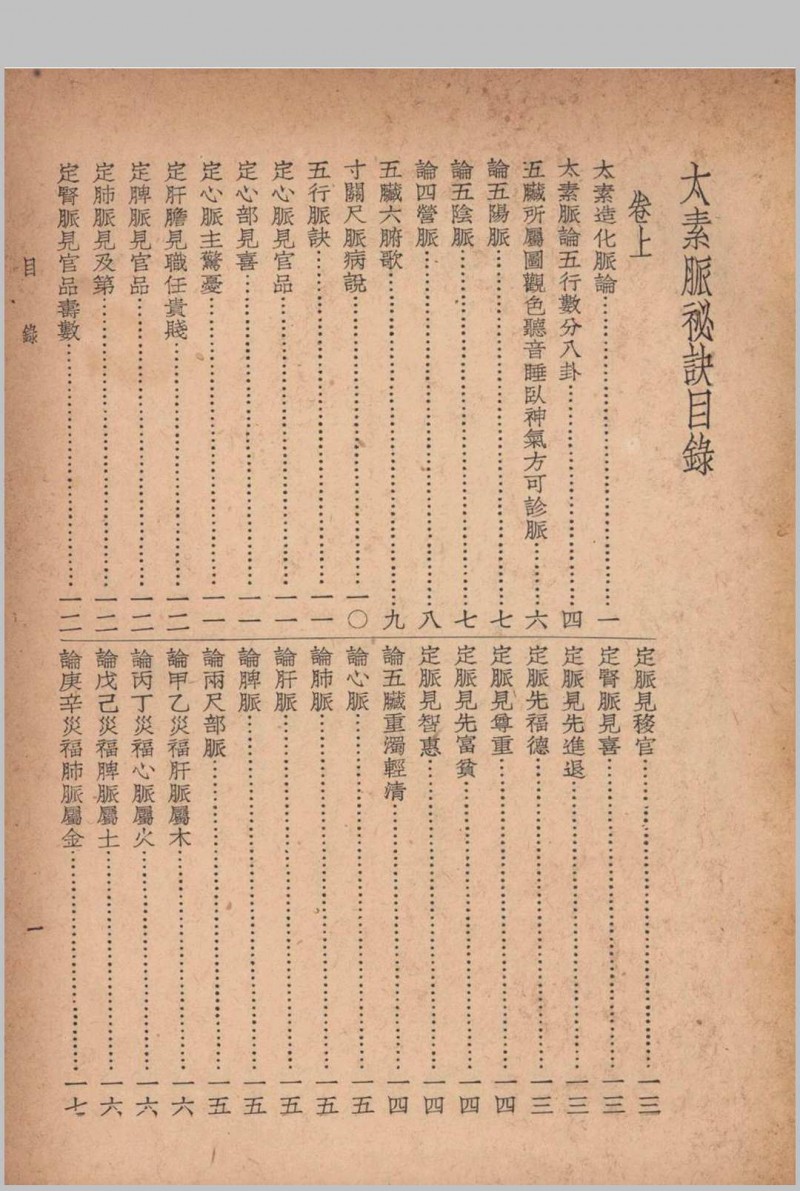 太素脈祕訣目錄
卷上
太素造化脈論……一
太素脈論五行數分八卦……四
五臟所屬圖觀色聽音睡臥神氣方可診脈……六
論五陽脈……七
論五陰脈……七
論四營脈……八
五臟六腑歌……九
寸關尺脈病說……一〇
五行脈訣……一一
定心脈見官品……一一
定心部見喜……一一
定心脈主驚憂……一一
定肝膽見職任貴賤……一二
定脾脈見官品……一二
定肺脈見及第……一二
定腎脈見官品壽數……一二
定脈見移官……一三
定腎脈見喜……一三
定脈見先進退……一三
定脈先福德……一三
定脈見尊重……一四
定脈見先富貧……一四
定脈見智惠……一四
論五臟重濁輕清……一四
論心脈……一五
論肺脈……一五
論肝脈……一五
論脾脈……一五
論兩尺部脈……一五
論甲乙災福肝脈屬木……一六
論丙丁災福心脈屬火……一六
論戊己災福脾脈屬土……一六
論庚辛災福肺脈屬金……一七
目錄
一